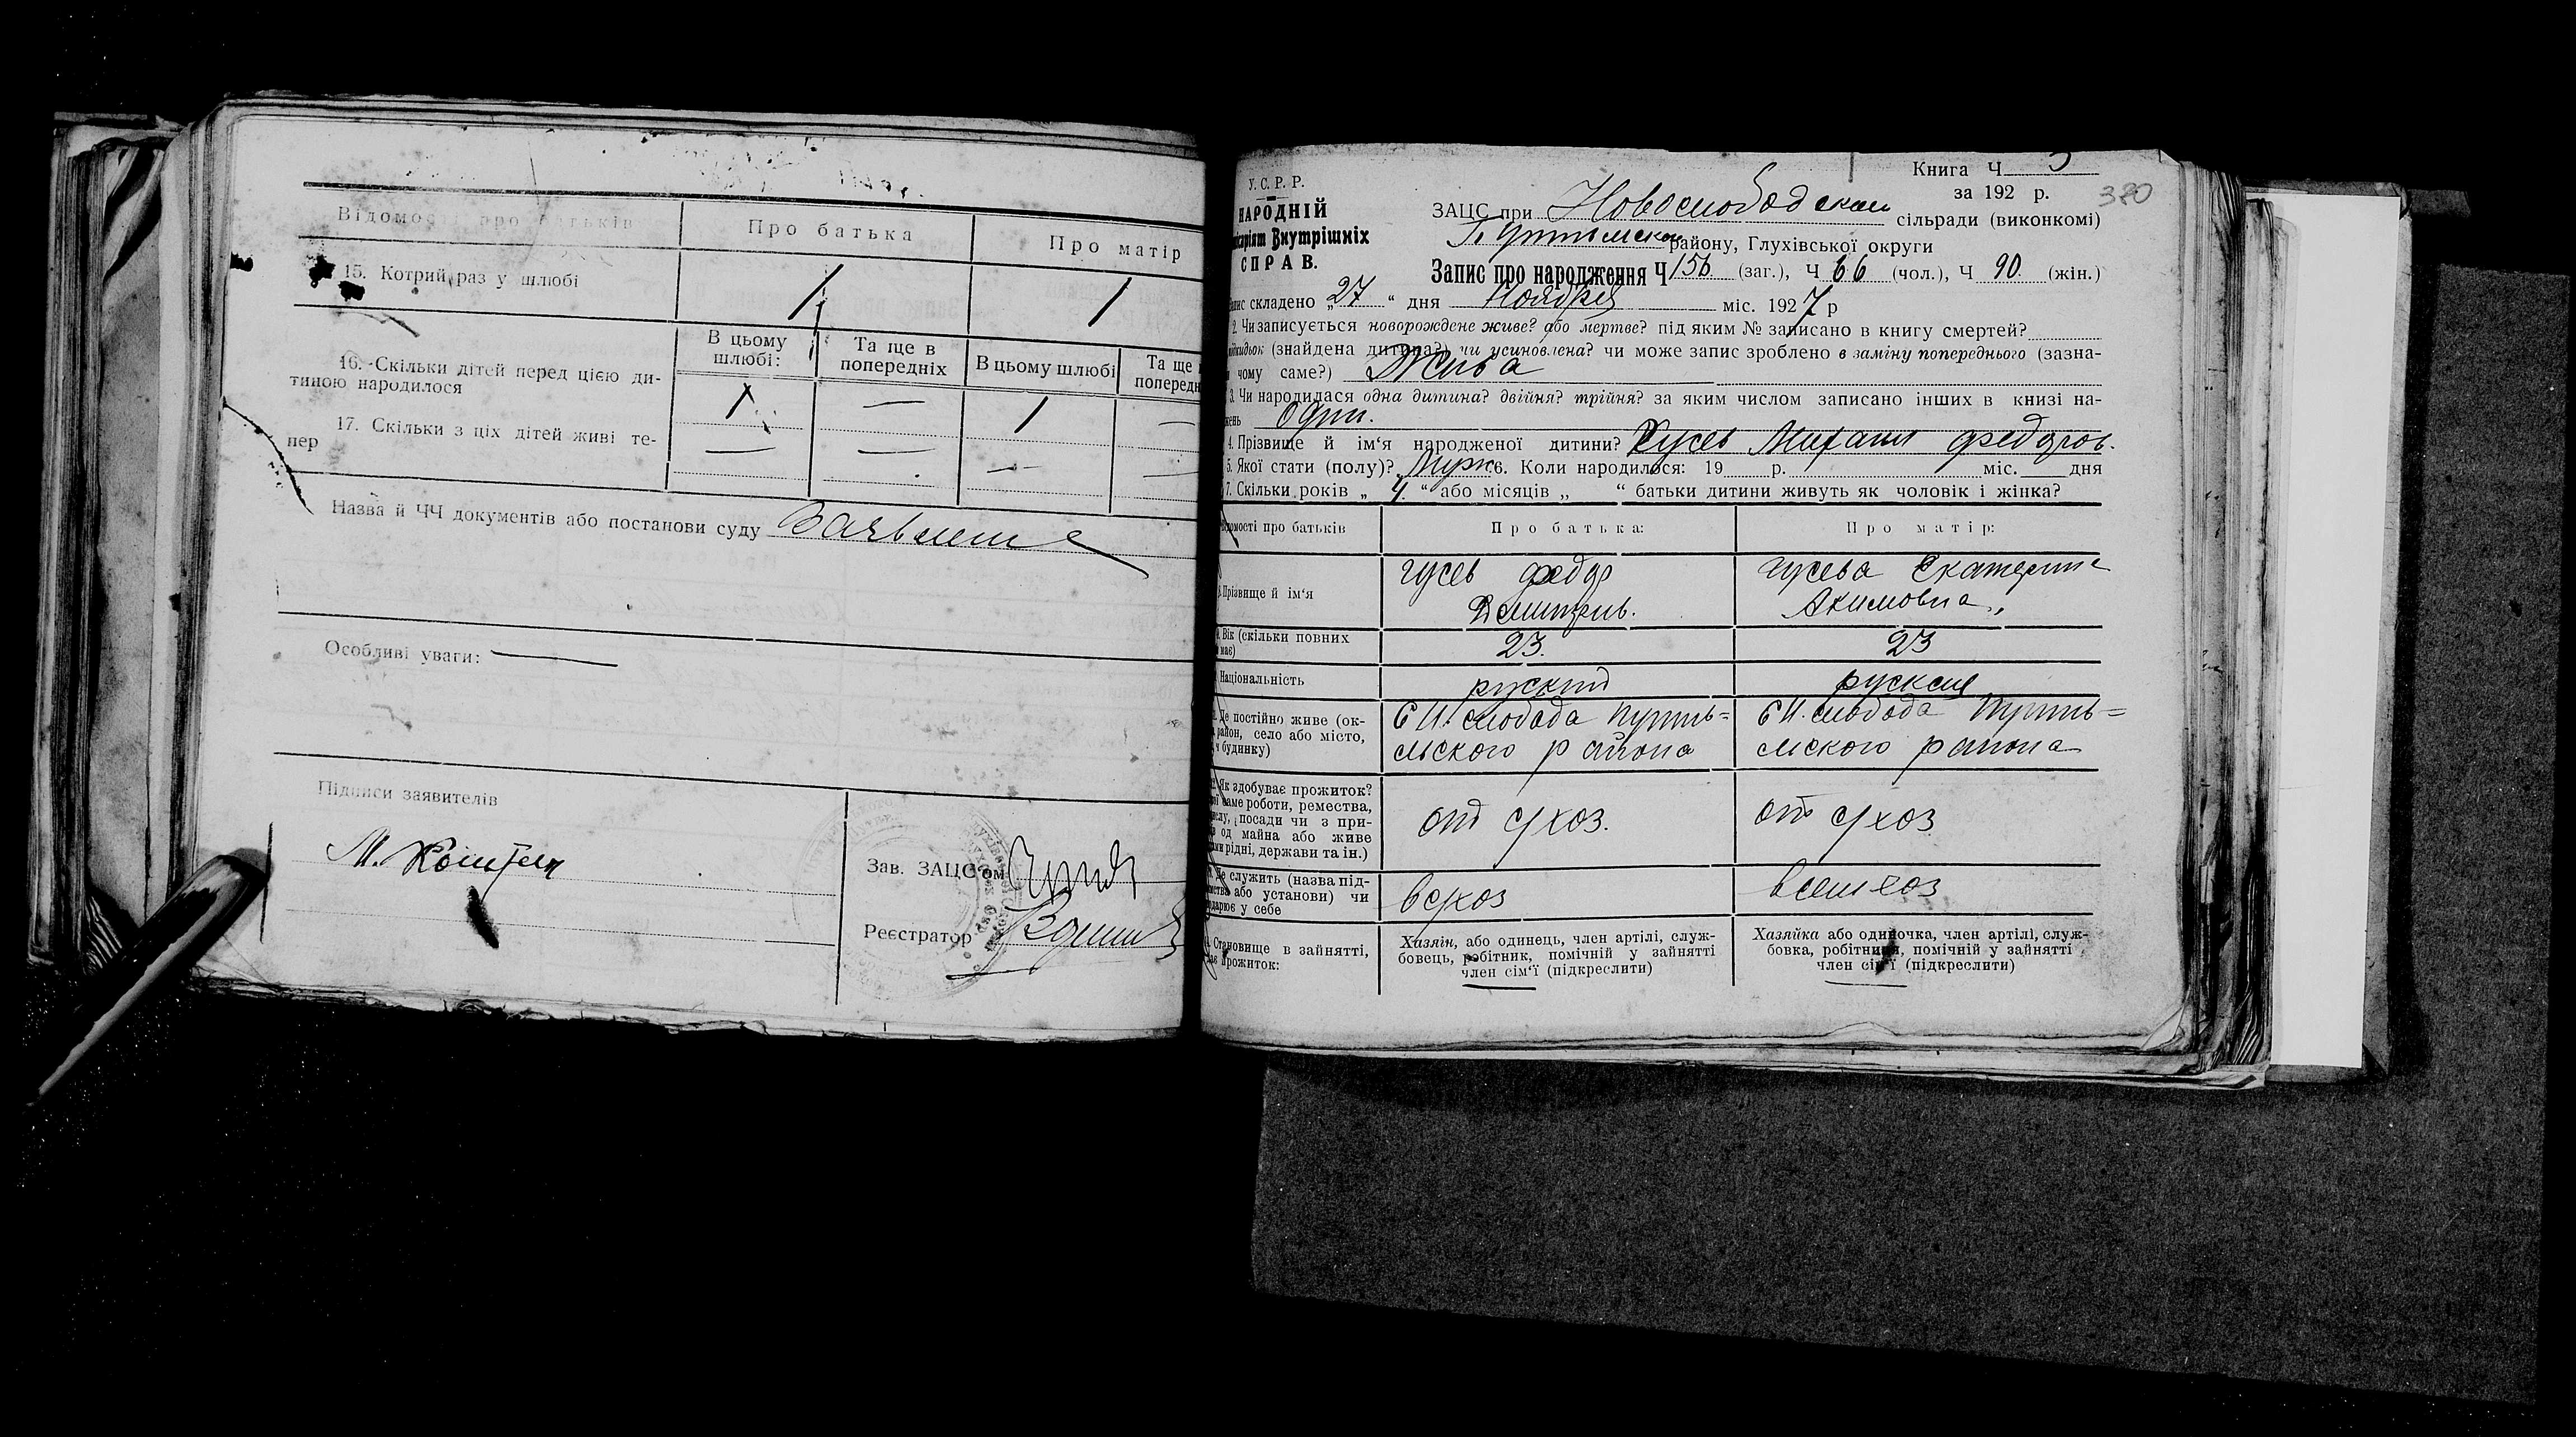 Відомості про батьків
Про батька
Про матір
15. Котрий раз у шлюбі
1
1
В цьому шлюбі:
Та ще в попередніх
В цьому шлюбі
Та ще
попередн
16. Скільки дітей перед цією ди-
тиною народилося
1
—
1
—
17. Скільки з ціх дітей живі те-
пер
—
—
—
—
Назва й ЧЧ документів або постанови суду Заявление
Особливі уваги: —
Підписи заявителів
М.
Зав. ЗАЦС'ом
Реєстратор
Книга Ч 3
У. С. Р. Р.
за 192 р.
380
НАРОДНІЙ
ЗАЦС при Новослободском сільради (виконкомі)
Внутрішніх
Путивльском району, Глухівської округи
СПРАВ.
Запис про народження Ч 156 (заг.), Ч 66 (чол.), Ч 90. (жін.)
складено „27“ дня Ноября міс. 1927 р
2. Чи записується новорождене живе? або мертве? під яким № записано в книгу смертей?
(знайдена дитина?) чи усиновлена? чи може запис зроблено в заміну попереднього (зазна-
чому саме?) Жива
3. Чи народилася одна дитина? двійня? трійня? за яким числом записано інших в книзі на-
один.
4. Прізвище й ім'я народженої дитини? Гусев Михаил Федоров.
5. Якої стати (полу)? Муж. 6. Коли народилося: 19 р. міс. дня
7. Скільки років „ 4. “ або місяців „ “ батьки дитини живуть як чоловік і жінка?
про батьків
Про батька:
Про матір:
Прізвище й ім'я
Гусев Федор
Дмитрив.
Гусева Екатерина
Акимовна,
Вік (скільки повних
має)
23.
23
Національність
руский
руская
Де постійно живе (ок-
район, село або місто,
ч будинку)
С Н. слобода Путив-
льского района
С Н. слобода Путив-
льского района
Як здобуває прожиток?
саме роботи, ремества,
посади чи з при-
од майна або живе
рідні, держави та ін.)
от с/хоз.
от с/хоз
Де служить (назва під-
або установи) чи
у себе
в с/хоз
в сельхоз
Становище в зайнятті,
прожиток:
Хазяїн, або одинець, член артілі, служ-
бовець, робітник, помічній у зайнятті
член сім'ї (підкреслити)
Хазяйка або одиночка, член артілі, служ-
бовка, робітниця, помічній у зайнятті
член сім'ї (підкреслити)